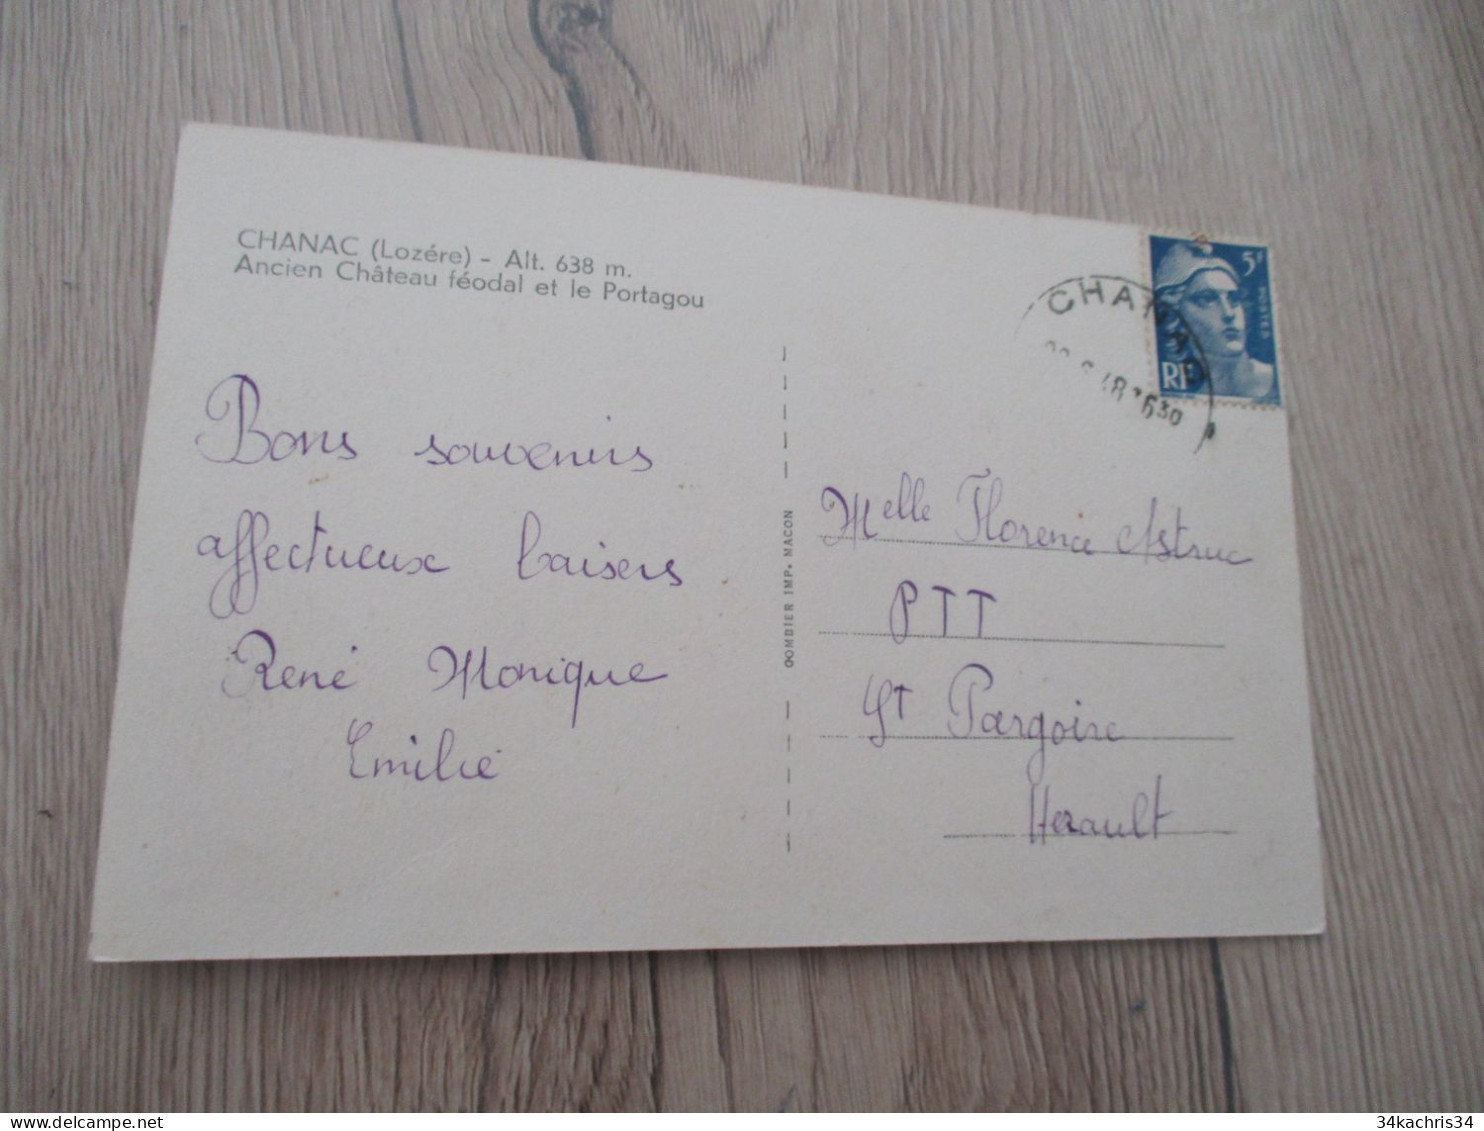 CHANAC (Lozére) - Alt. 638 m.
Ancien Château féodal et le Portagou
Bons souvenirs
affectueux baisers
René Monique
Emilie
COMBIER IMP. MACON
5F
POSTES
RF
CHANAC
48 1630
Melle Florence Astruc
PTT
ST Pargoire
Herault
34kachris34